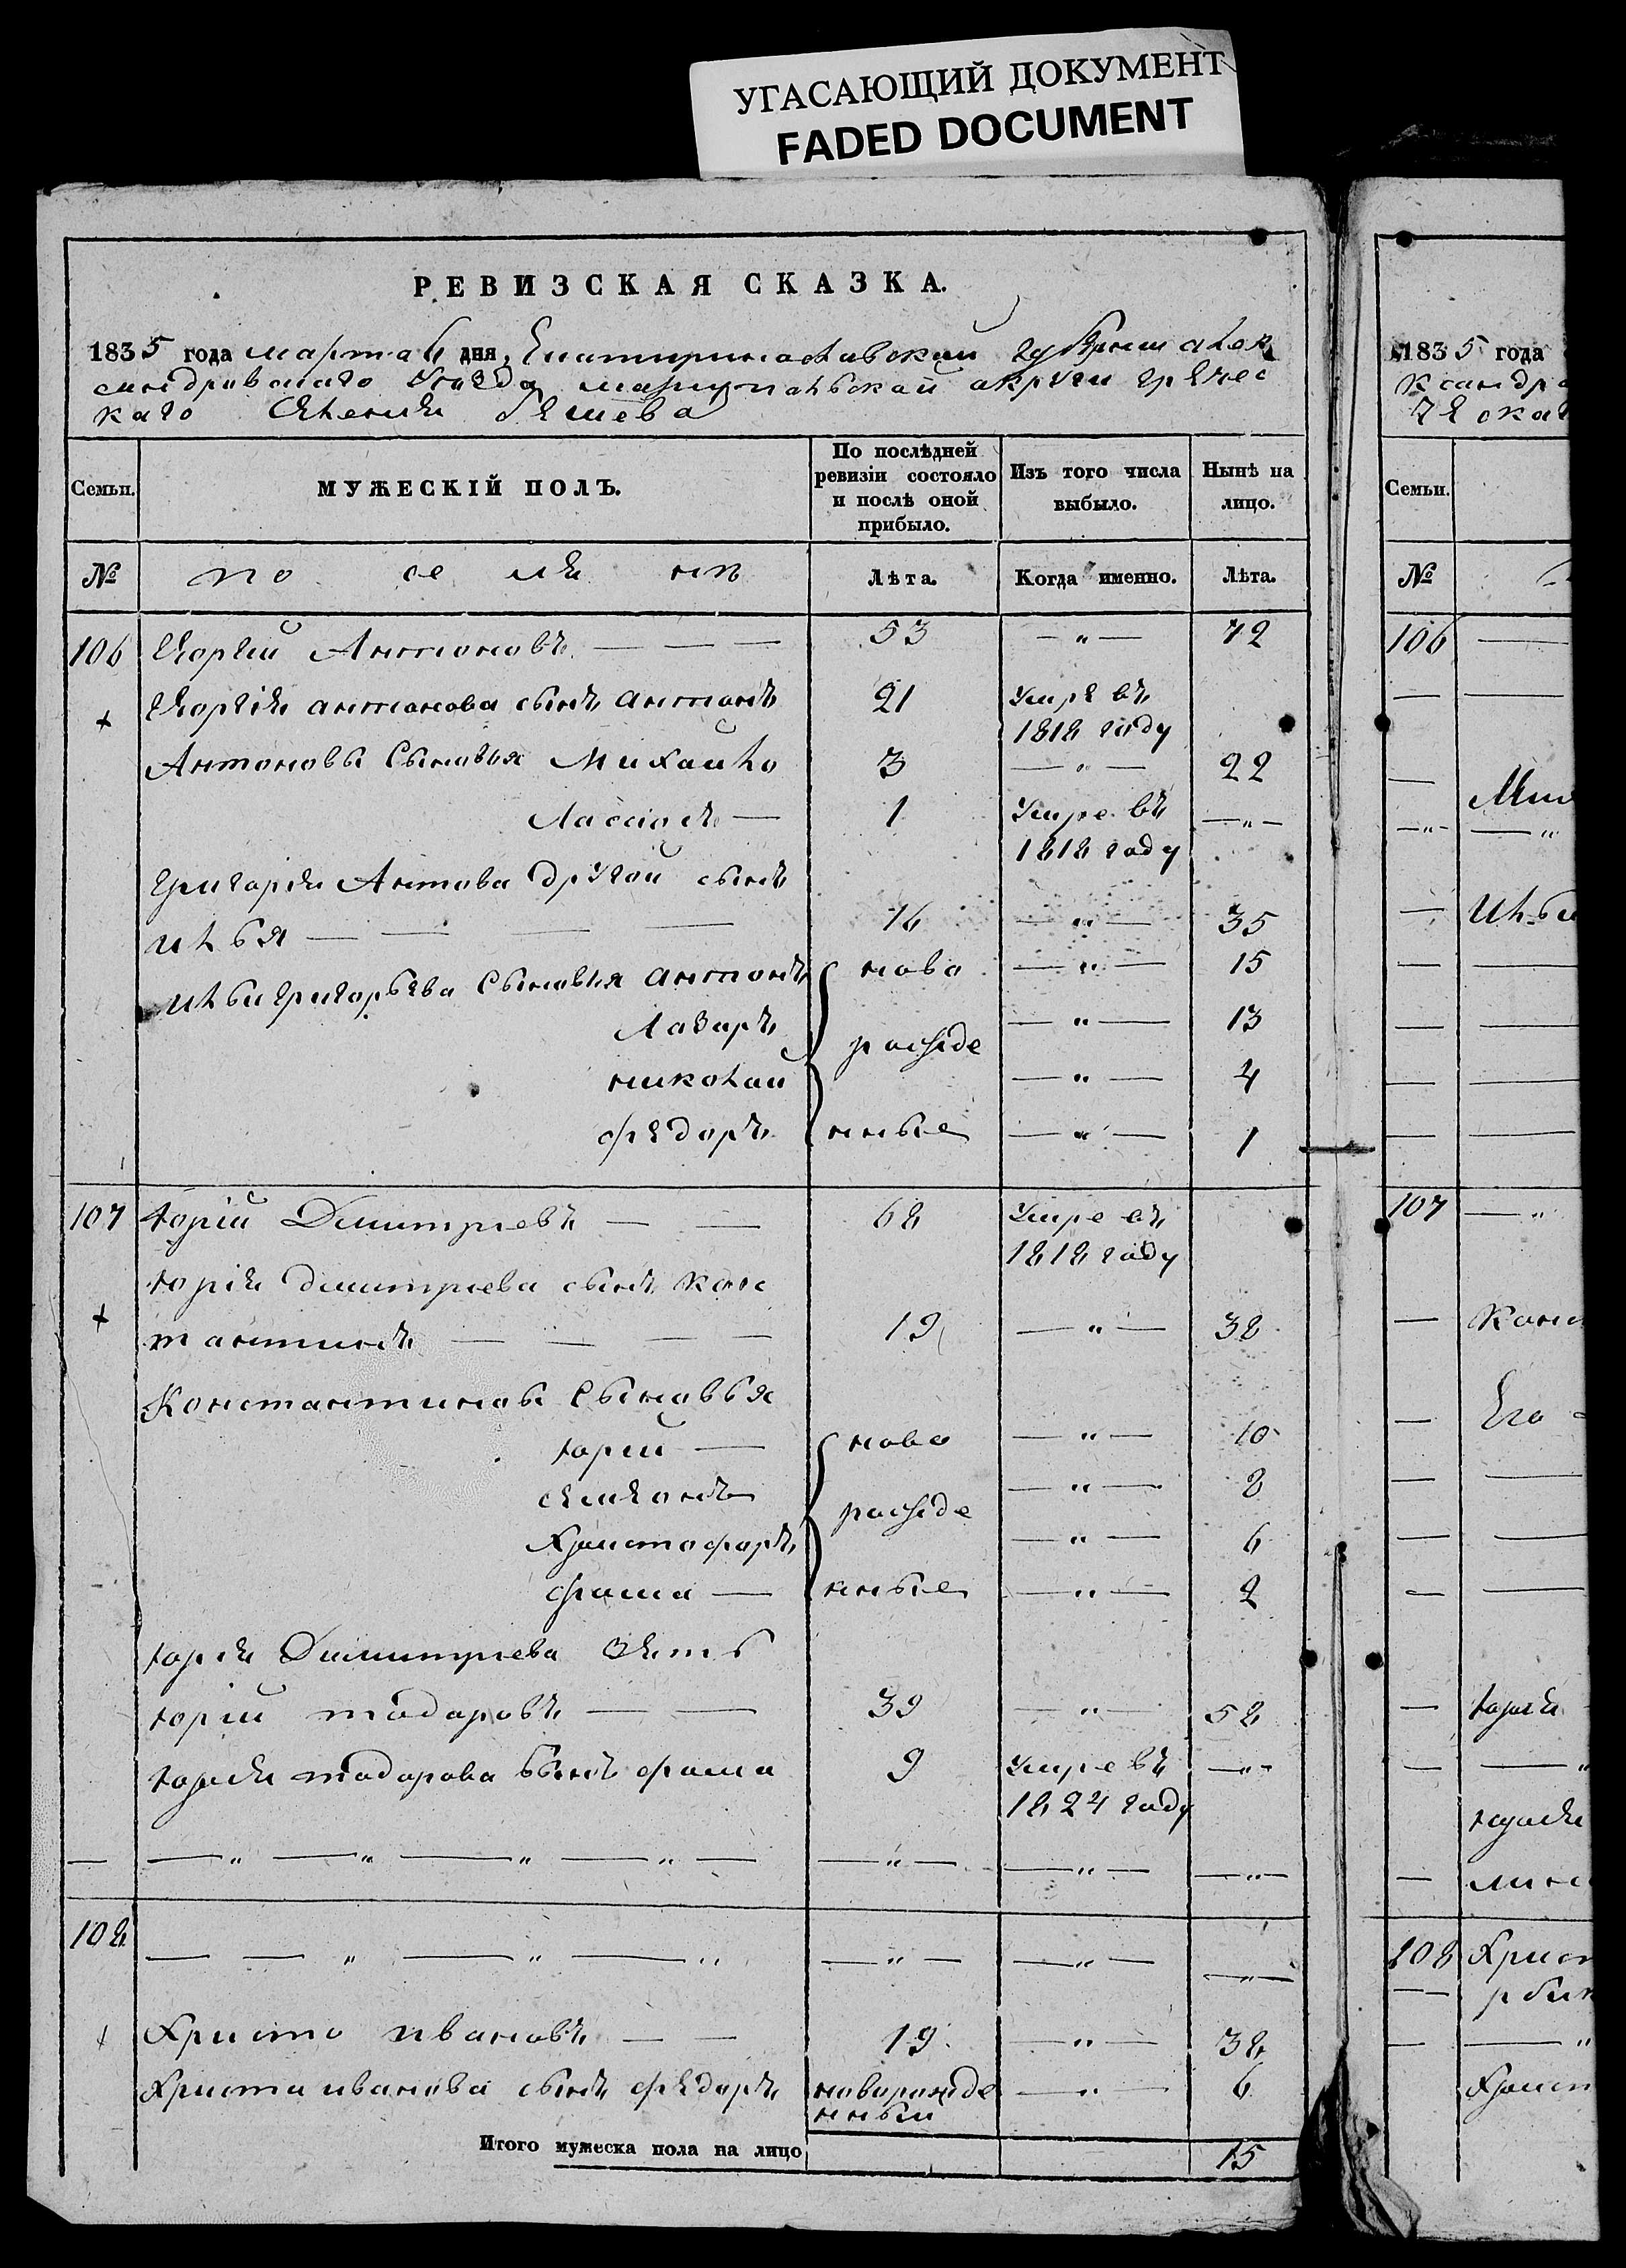 УГАСАЮЩИЙ ДОКУМЕНТ
FADED DOCUMENT
РЕВИЗСКАЯ СКАЗКА.
1835 года марта дня, Екатеринославской губернии алек
сандровского уезда мариупальской акруги гречес
каго селения бешева
Семьи.
МУЖЕСКІЙ ПОЛЪ.
По послѣдней ревизіи состояло и послѣ оной прибыло.
Изъ того числа выбыло.
Нынѣ на лицо.
№ по се ля нъ Лѣта. Когда именно. Лѣта.
106 Антоновъ — — — 53 — „ — 72
антонова сынъ антонъ 21 Умре въ
1818 году
Антоновы Сыновья Михайло 3 — „ — 22
1 Умре въ — „ —
1818 году
Григория Антова другой сынъ
илья — — — — 16 — „ — 35
ильи григорьева Сыновья антонъ ново — „ — 15
Лазаръ рожде — „ — 13
николай — „ — 4
федоръ нные — „ — 1
107 юрій Димитриевъ — — 68 Умре въ
1818 году
юрія димитриева сынъ конс
тантинъ — — — — 19 — „ — 38
Константиновы Сыновья
юрий — ново — „ — 10
семионъ — „ — 8
Христофоръ рожде — „ — 6
фома — нные — „ — 2
юрия Димитриева зять
юрій тодоровъ — — 39 — „ — 58
юрия тодорова сынъ фома 9 Умре въ — „ —
1824 году
108
Христо ивановъ — — 19 — „ — 38
Христа иванова сынъ федоръ новорожде — „ — 6
нный
Итого мужеска пола на лицо 15
1835 года
ксандр
Семьи.
№
106
107
108